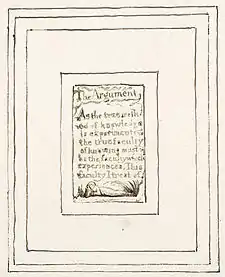 The Argument
As the true meth
od of knowledge
is experiment
the true faculty
of knowing must
be the faculty which
experiences. This
faculty I treat of.